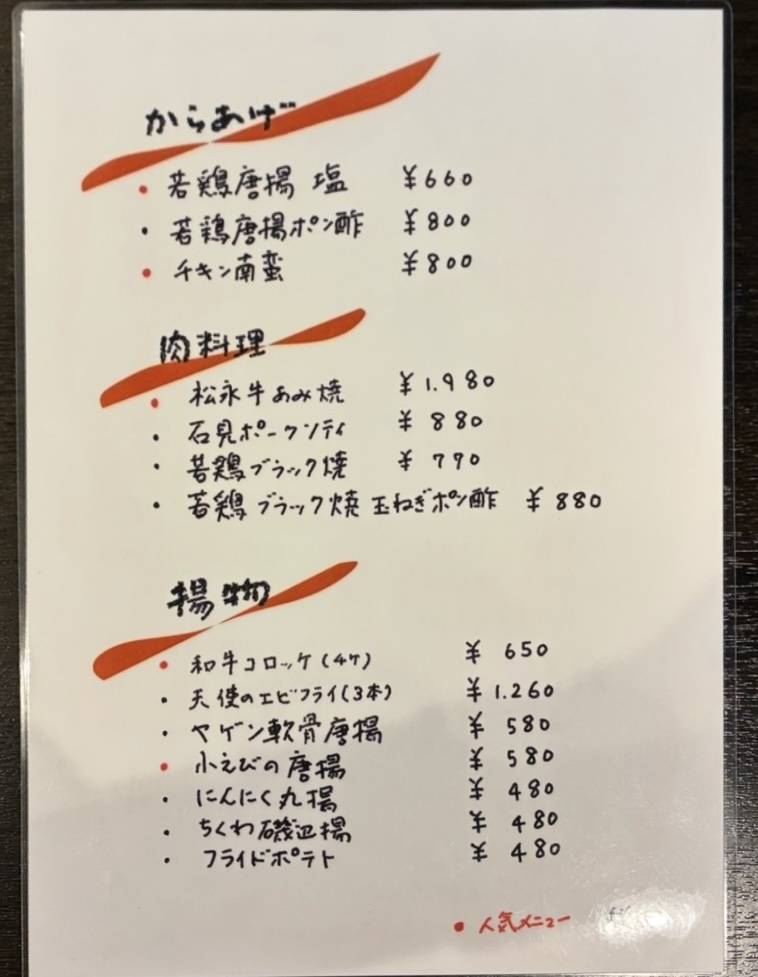 からあげ
• 若鶏唐揚 塩 ¥660
• 若鶏唐揚ポン酢 ¥800
• チキン南蛮 ¥800
肉料理
• 松永牛あみ焼 ¥1.980
• 石見ポークソティ ¥880
• 若鶏ブラック焼 ¥790
• 若鶏ブラック焼 玉ねぎポン酢 ¥880
揚物
• 和牛コロッケ(4ケ) ¥650
• 天使のエビフライ(3本) ¥1.260
• ヤゲン軟骨唐揚 ¥580
• 小えびの唐揚 ¥580
• にんにく丸揚 ¥480
• ちくわ磯辺揚 ¥480
• フライドポテト ¥480
• 人気メニュー